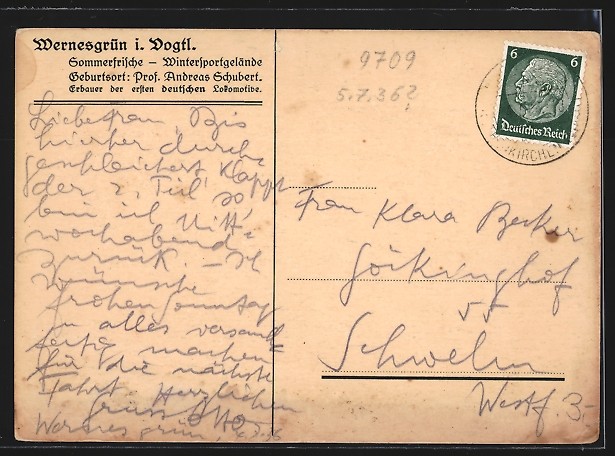 Wernesgrün i. Vogtl.
Sommerfrische – Wintersportgelände
Geburtsort: Prof. Andreas Schubert.
Erbauer der ersten deutschen Lokomotive.
Liebe Frau, Bis
hierher durch-
geschleichert klappt
der 2. Teil so
bin ich Mitt-
wochabend
zurück. – Ich
wünsche
frohen Sonntag
u alles versand-
fertig machen
für die nächste
Fahrt. Herzlichen
Gruss Otto
Wernesgrün,
9709
5.7.36?
6 6
Deutsches Reich
KIRCHEN
Frau Klara Becker
Göckinghof
55
Schwelm
Westf
3.-